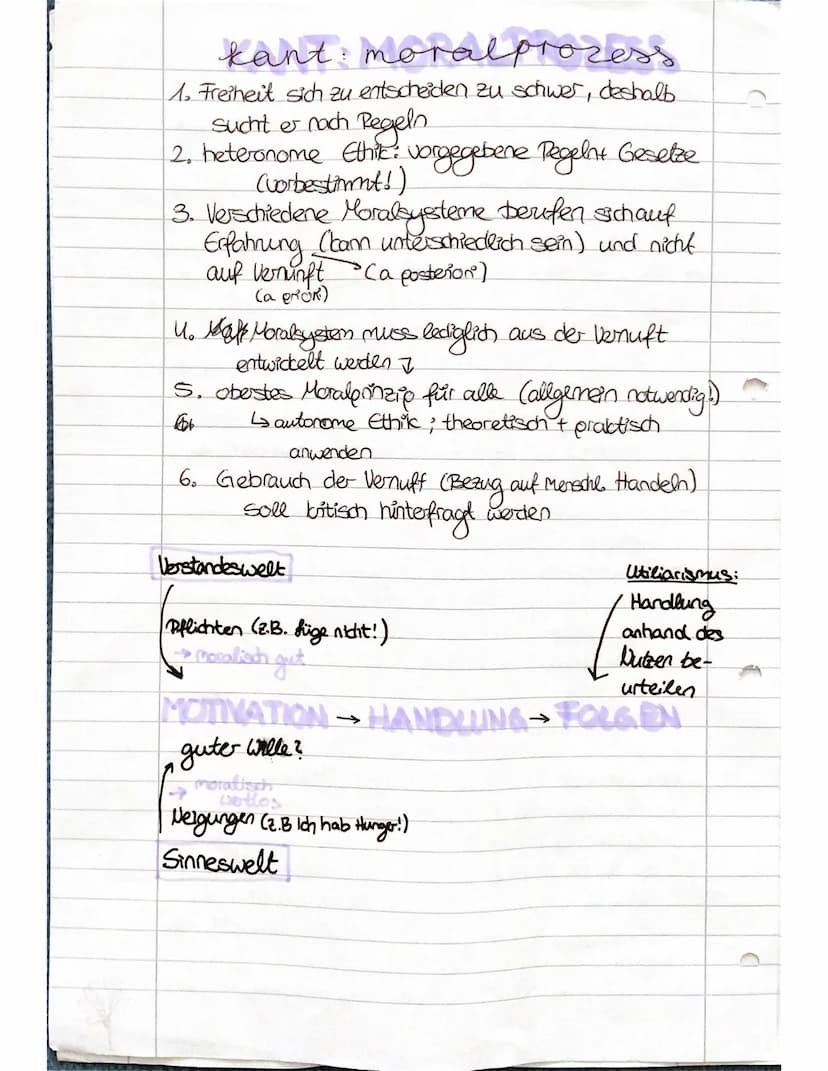 Kant: Moralprozess
1. Freiheit sich zu entscheiden zu schwer, deshalb
sucht er nach Regeln
2. heteronome Ethik: vorgegebene Regeln + Gesetze
(vorbestimmt!)
3. Verschiedene Moralsysteme berufen sich auf
Erfahrung (kann unterschiedlich sein) und nicht
auf Vernunft → (a posteriori)
(a priori)
4. Moralsystem muss lediglich aus der Vernuft
entwickelt werden ↴
5. oberstes Moralprinzip für alle (allgemein notwendig!)
↳ autonome Ethik; theoretisch + praktisch
anwenden
6. Gebrauch der Vernuft (Bezug auf menschl. Handeln)
soll kritisch hinterfragt werden
Verstandeswelt
Pflichten (z.B. lüge nicht!)
→ moralisch gut
Utiliarismus:
Handlung
anhand des
Nutzen be-
urteilen
MOTIVATION → HANDLUNG → FOLGEN
guter Wille?
→ moralisch
wertlos
Neigungen (z.B Ich hab Hunger!)
Sinneswelt